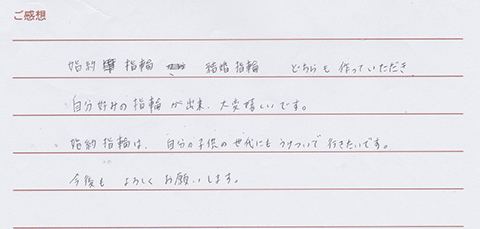 ご感想
婚約指輪 結婚指輪 どちらも作っていただき
自分好みの指輪が出来、大変嬉しいです。
婚約指輪は、自分の子供の世代にもうけついで行きたいです。
今後もよろしくお願いします。